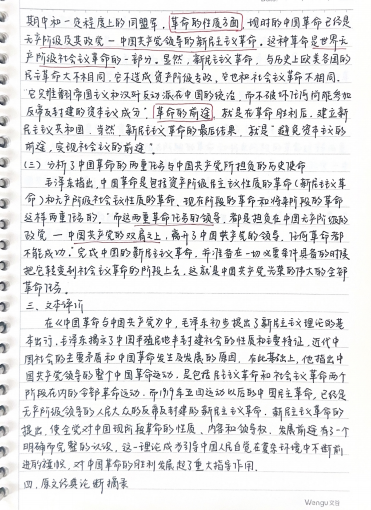 期中和一定程度上的同盟军。革命的性质方面，现时的中国革命已经是
无产阶级及其政党——中国共产党领导的新民主主义革命。这种革命是世界无
产阶级社会主义革命的一部分。显然，新民主主义革命，与历史上欧美各国的
民主革命大不相同，它不造成资产阶级专政，它也和社会主义革命不相同，
"它只推翻帝国主义和汉奸反动派在中国的统治，而不破坏任何尚能参加
反帝反封建的资本主义成分"。革命的前途，就是在革命胜利后，建立新
民主主义共和国。当然，新民主主义革命的最后结果，就是"避免资本主义的
前途，实现社会主义的前途"。
(三)分析了中国革命的两重任务与中国共产党所担负的历史使命
毛泽东指出，中国革命是包括资产阶级民主主义性质的革命（新民主主义革
命）和无产阶级社会主义性质的革命、现在阶段的革命和将来阶段的革命
这样两重任务的。"而这两重革命任务的领导，都是担负在中国无产阶级的
政党——中国共产党的双肩之上，离开了中国共产党的领导，任何革命都
不能成功。"完成中国的新民主主义革命，并准备在一切必要条件具备的时候
把它转变到社会主义革命的阶段上去，这就是中国共产党光荣的伟大的全部
革命任务。
三、文本评价
在《中国革命与中国共产党》中，毛泽东初步提出了新民主主义理论的基
本出发，毛泽东揭示了中国半殖民地半封建社会的性质和主要特征，近代中
国社会的主要矛盾和中国革命发生及发展的原因。在此基础上，他指出中
国共产党领导的整个中国革命运动，是包括民主主义革命和社会主义革命两个
阶段在内的全部革命运动。而1919年五四运动以后的中国民主革命，已经是
无产阶级领导的人民大众的反帝反封建的新民主主义革命。新民主主义革命的
提出，使全党对中国现阶段革命的性质、内容和领导权、发展前途有了一个
明确而完整的认识，这一理论成为引导中国人民自觉在复杂环境中不断前
进的旗帜，对中国革命的胜利发展起了重大指导作用。
四、原文经典论断摘录
Wangu